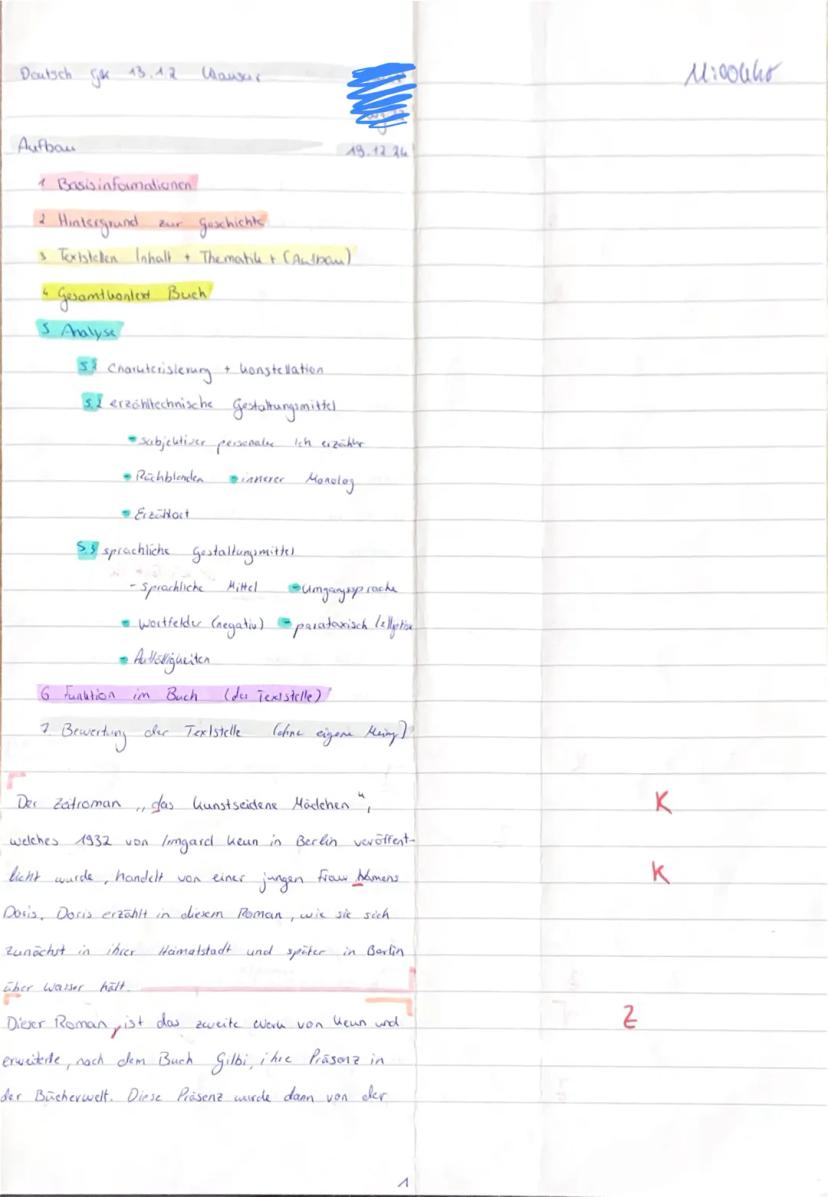 Deutsch gk 13.12 Klausur
Aufbau
19.12.24
1 Basisinformationen
2 Hintergrund zur Geschichte
3 Textstellen Inhalt + Thematik + (Aufbau)
4 Gesamtkontext Buch
5 Analyse
5.1 Charakterisierung + konstellation
5.2 erzähltechnische Gestaltungsmittel
• subjektiver personaler Ich erzähler
• Rückblenden • innerer Monolog
• Erzählort
5.3 sprachliche Gestaltungsmittel
- sprachliche Mittel • Umgangssprache
• Wortfelder (negativ) • parataxisch /elliptisch
• Auffälligkeiten
6 Funktion im Buch (der Textstelle)
7. Bewertung der Textstelle (ohne eigene Meinung)
Der Zeitroman „das kunstseidene Mädchen“, K
welches 1932 von Irmgard Keun in Berlin veröffent-
licht wurde, handelt von einer jungen Frau Namens K
Doris. Doris erzählt in diesem Roman, wie sie sich
zunächst in ihrer Heimatstadt und später in Berlin
über Wasser hält.
Dieser Roman, ist das zweite Werk von Keun und Z
erweiterte, nach dem Buch Gilbi, ihre Präsenz in
der Bücherwelt. Diese Präsenz wurde dann von der
1